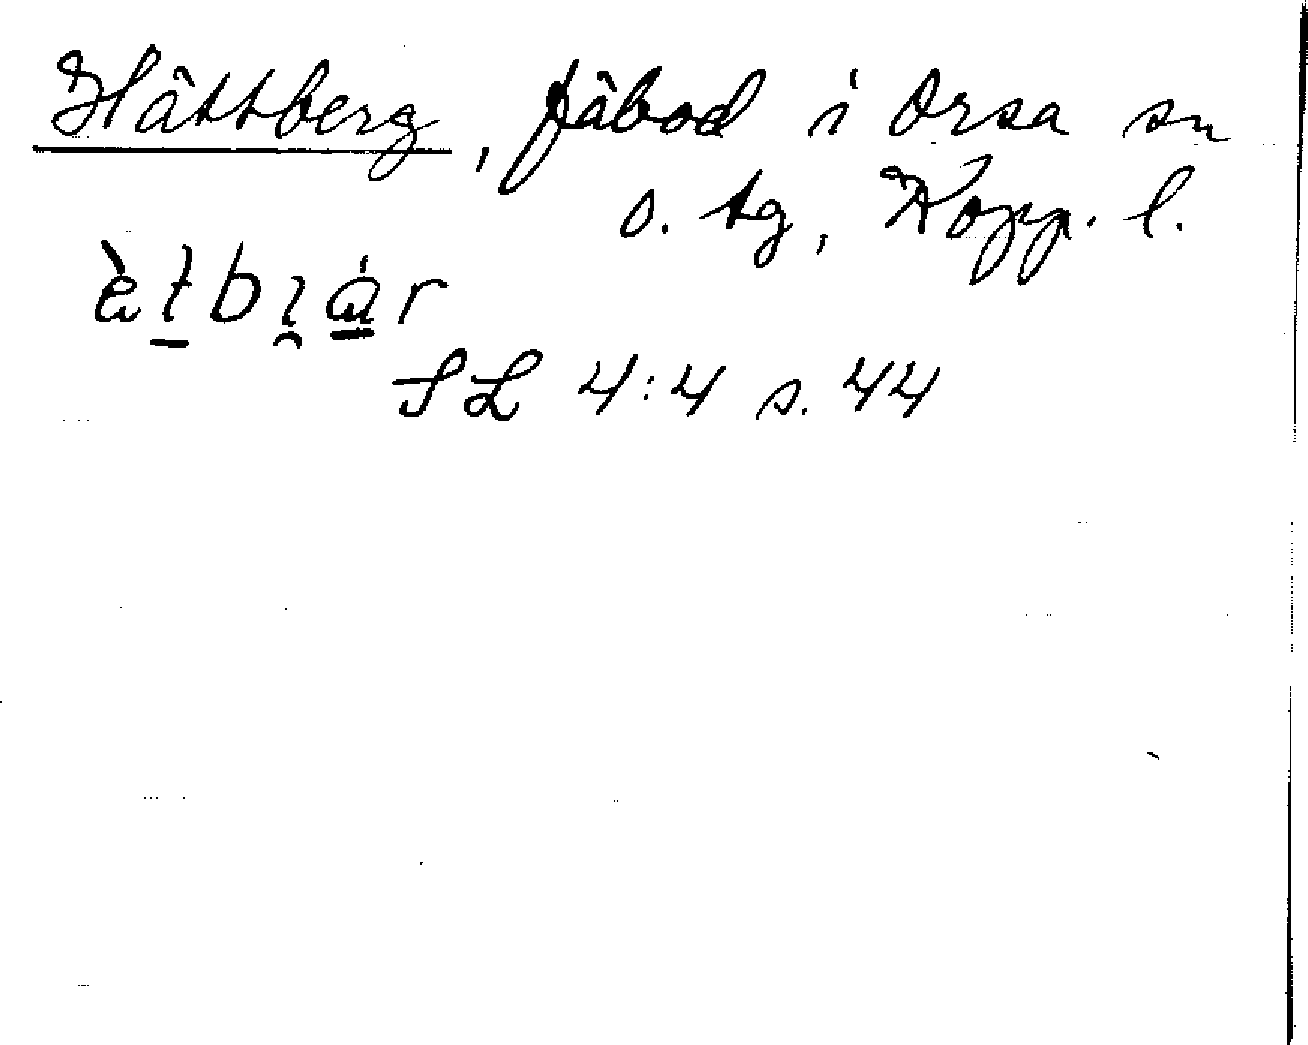 Hättberg, fäbod i Orsa sn
o. tg, Kopp. l.
SL 4:4 s. 44